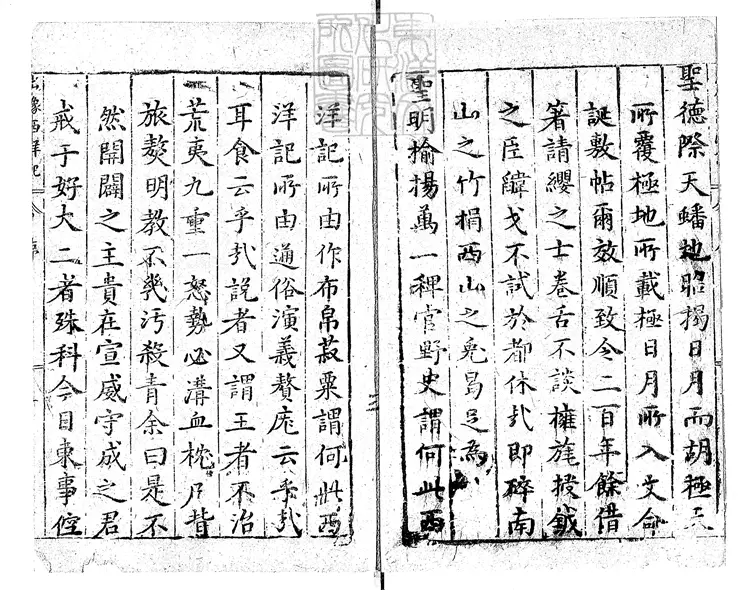 聖德際天蟠地昭揭日月而胡極天
所覆極地所載極日月所入文命
誕敷帖爾效順致令二百年餘借
箸請纓之士卷舌不談擁旄授鉞
之臣韔戈不試於都休哉即碎南
山之竹搨西山之兔曷足為
聖明揄揚萬一稗官野史謂何此西
洋記所由作布帛菽粟謂何此西
洋記所由通俗演義贅庬云乎哉
耳食云乎哉說者又謂王者不治
荒夷九重一怒勢必溝血枕尸昔
旅獒明教不幾汚殺青余曰是不
然開闢之主貴在宣威守成之君
戒于好大二者殊科今日東事倥
像西洋記